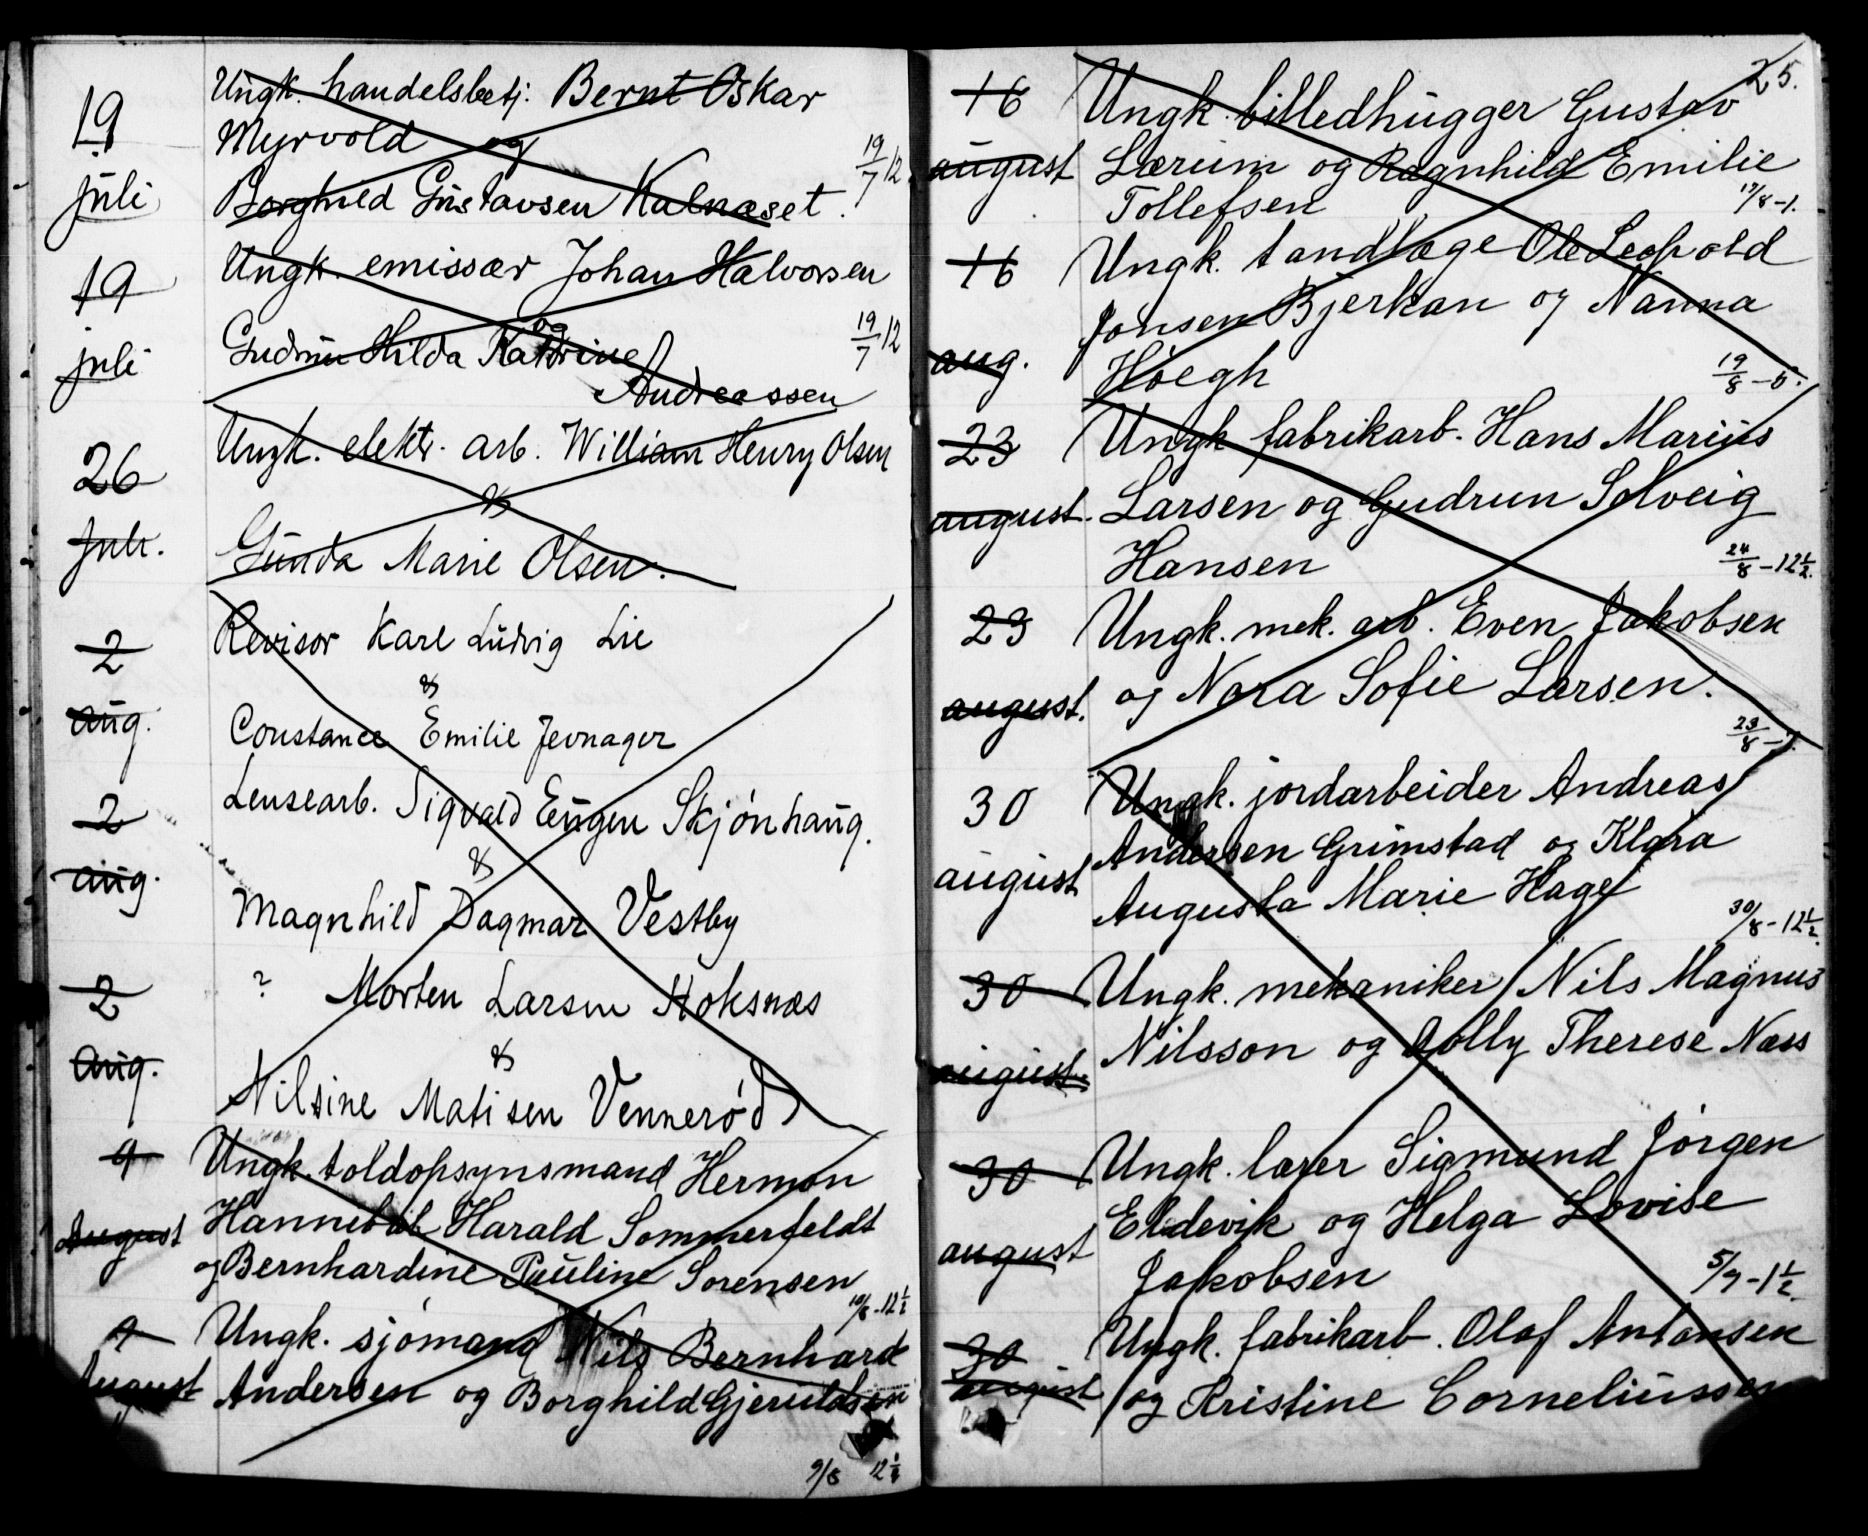 19 Ungk. handelsbetj. Bernt Oskar
Myrvold og
juli Borghild Gustavsen Kalnæset. 19/7 12
19 Ungk. emissær Johan Halvorsen
og
juli Gudrun Hilda Katrine 19/7 12
Andreassen
26 Ungk. elektr. arb. William Henry Olsen
&
juli. Gunda Marie Olsen.
2 Revisor Karl Ludvig Lie
&
aug. Constance Emilie Jevnager
2 Lensearb. Sigvald Eugen Skjönhaug.
&
aug. Magnhild Dagmar Vestby
2 ? Morten Larsen Hoksnæs
&
aug. Nilsine Matisen Vennerød
9 Ungk. toldopsynsmand Herman
August Hannibal Harald Sommerfeldt
og Bernhardine Pauline Sorensen
10/8-12½
9 Ungk. sjómand Nils Bernhard
August Andersen og Borghild Gjerulds
9/8 12½
25.
16 Ungk. billedhugger Gustav
august Lærum og Ragnhild Emilie
Tollefsen 17/8-1.
16 Ungk. tandlæge Ole Leopold
Jónsen Bjerkan og Nanna
aug. Höegh 19/8-5.
23 Ungk fabrikarb. Hans Marius
august. Larsen og Gudrun Solveig
Hansen 24/8-12½.
23 Ungk. mek. arb. Even Jakobsen
august. og Nora Sofie Larsen.
23/8-1.
30 Ungk. jordarbeider Andreas
Andersen Grimstad og Klara
august Augusta Marie Hage
30/8-12½.
30 Ungk. mekaniker Nils Magnus
august. Nilsson og Aolly Therese Næss
30 Ungk. lærer Sigmund Jörgen
august Eldevik og Helga Lovise
Jakobsen 5/9-1½.
30 Ungk. fabrikarb. Olaf Antonsen
august og Kristine Corneliussen